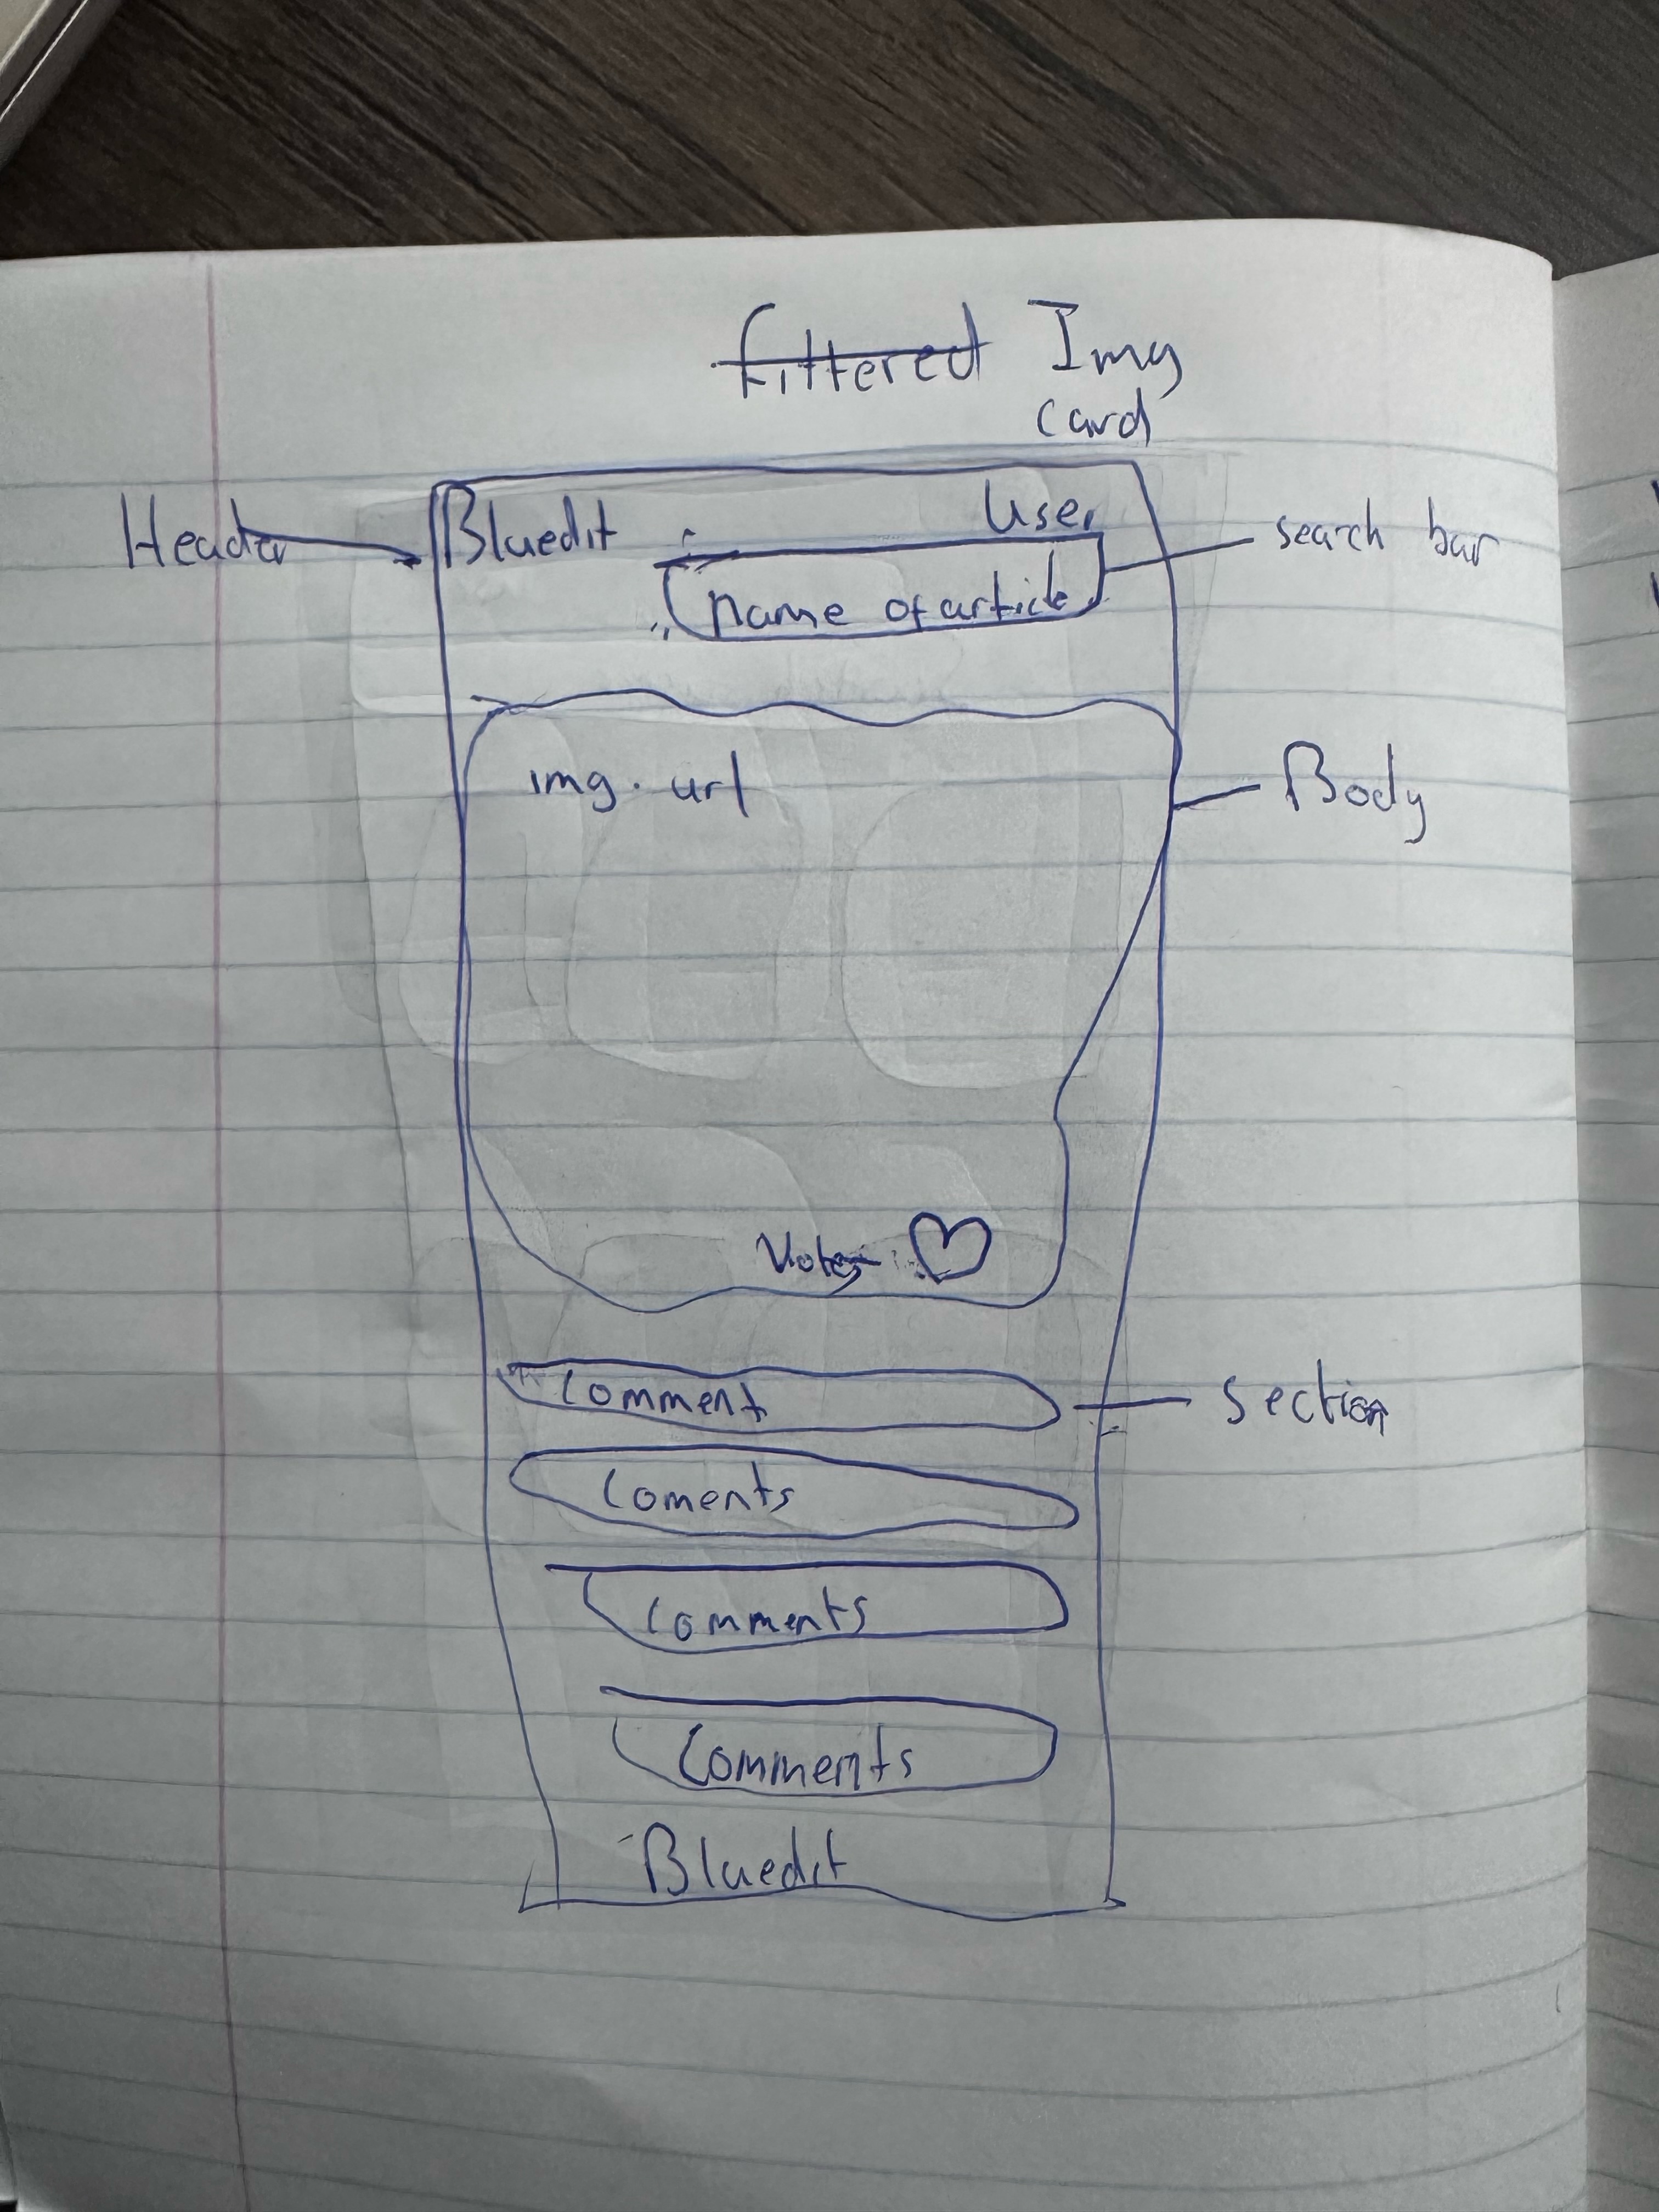 filtered Img
card
Header Bluedit User search bar
name of article
img. url
Body
Votes
Comment section
Coments
Comments
Comments
Bluedit